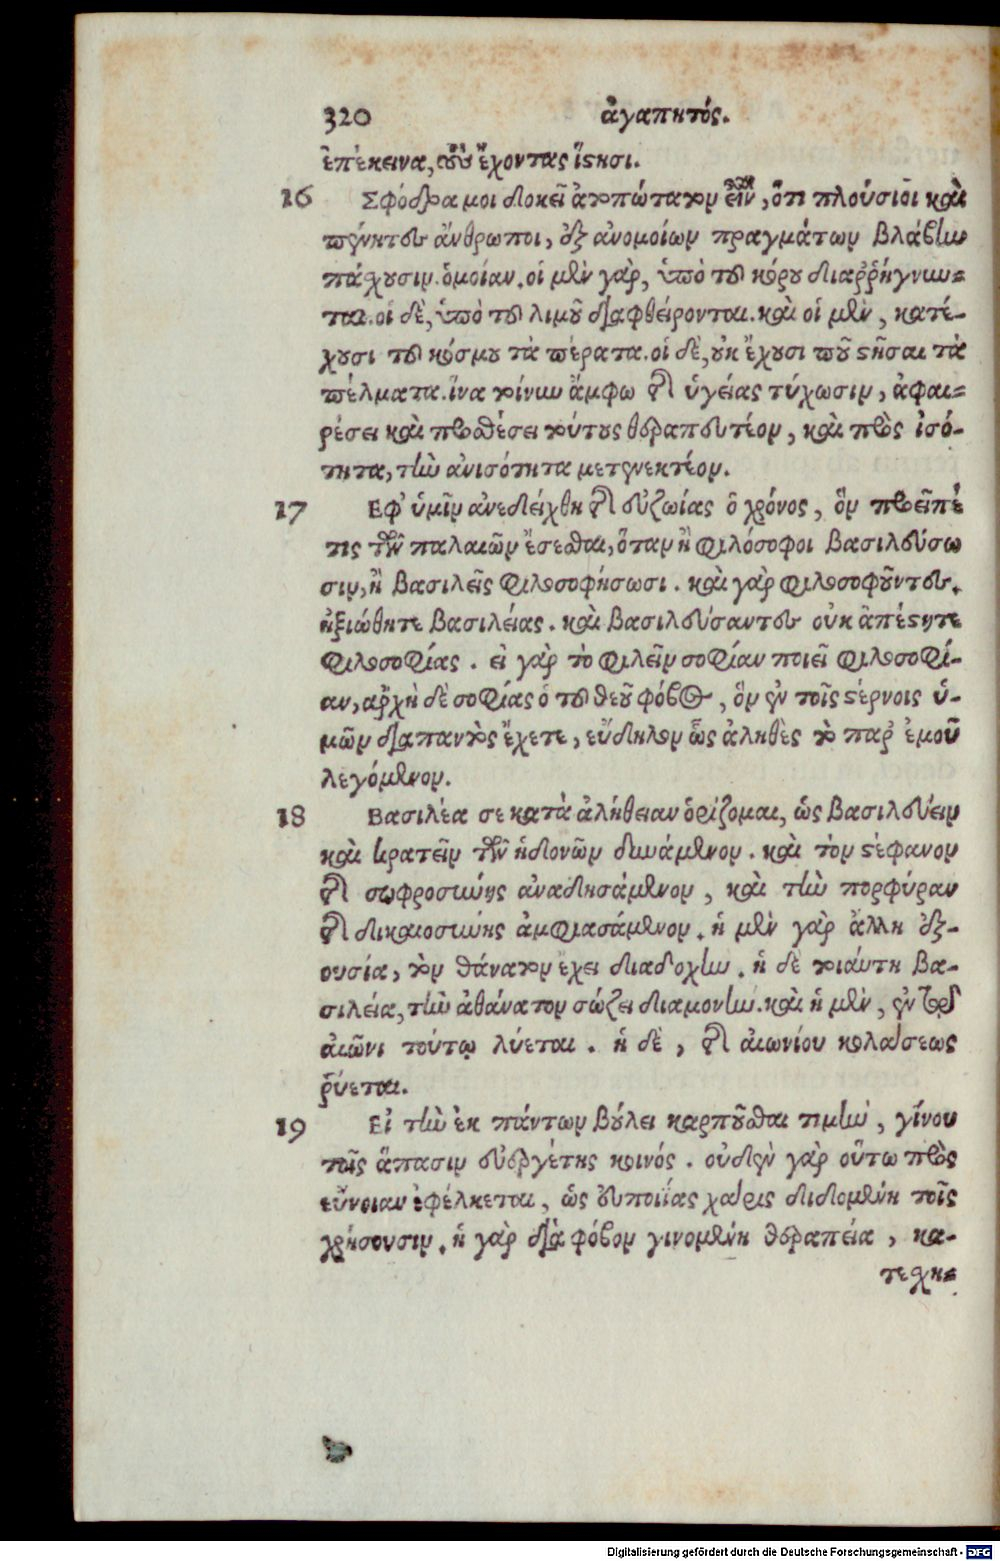 320 ἀγαπητός.
ἐπέκεινα, τοὺς ἔχοντας ἵστησι.
16 Σφόδρα μοι δοκεῖ ἀτοπώτατον εἶναι, ὅτι πλούσιοι καὶ
πένητες ἄνθρωποι, ἐξ ἀνομοίων πραγμάτων βλάβην
πάσχουσιν ὁμοίαν. οἱ μὲν γὰρ, ὑπὸ τοῦ κόρου διαῤῥήγνυν-
ται. οἱ δὲ, ὑπὸ τοῦ λιμοῦ διαφθείρονται. καὶ οἱ μὲν, κατέ-
χουσι τοῦ κόσμου τὰ πέρατα. οἱ δὲ, οὐκ ἔχουσι ποῦ στῆσαι τὰ
πέλματα. ἵνα τοίνυν ἄμφω τῆς ὑγείας τύχωσιν, ἀφαι-
ρέσει καὶ προσθέσει τούτους θεραπευτέον, καὶ πρὸς ἰσό-
τητα, τὴν ἀνισότητα μετενεκτέον.
17 Εφ' ὑμῖν ἀνεδείχθη τῆς εὐζωίας ὁ χρόνος, ὃν προεῖπέ
τις τῶν παλαιῶν ἔσεσθαι, ὅταν ἢ φιλόσοφοι βασιλεύσω
σιν, ἢ βασιλεῖς φιλοσοφήσωσι. καὶ γὰρ φιλοσοφοῦντες,
ἠξιώθητε βασιλείας. καὶ βασιλεύσαντες οὐκ ἀπέστητε
φιλοσοφίας. εἰ γὰρ τὸ φιλεῖν σοφίαν ποιεῖ φιλοσοφί-
αν, ἀρχὴ δὲ σοφίας ὁ τοῦ θεοῦ φόβος, ὃν ἐν τοῖς στέρνοις ὑ-
μῶν διαπαντὸς ἔχετε, εὔδηλον ὡς ἀληθὲς τὸ παρ' ἐμοῦ
λεγόμενον.
18 Βασιλέα σε κατὰ ἀλήθειαν ὁρίζομαι, ὡς βασιλεύειν
καὶ κρατεῖν τῶν ἡδονῶν δυνάμενον. καὶ τὸν στέφανον
τῆς σωφροσύνης ἀναδησάμενον, καὶ τὴν πορφύραν
τῆς δικαιοσύνης ἀμφιασάμενον. ἡ μὲν γὰρ ἄλλη ἐξ-
ουσία, τὸν θάνατον ἔχει διαδοχήν. ἡ δὲ τοιάυτη βα-
σιλεία, τὴν ἀθάνατον σώζει διαμονήν. καὶ ἡ μὲν, ἐν τῷ
αἰῶνι τούτῳ λύεται. ἡ δὲ, τῆς αἰωνίου κολάσεως
ῥύεται.
19 Εἰ τὴν ἐκ πάντων βούλει καρποῦσθαι τιμὴν, γίνου
τοῖς ἅπασιν εὐεργέτης κοινός. οὐδὲν γὰρ οὕτω πρὸς
εὔνοιαν ἐφέλκεται, ὡς εὐποιΐας χάρις διδομένη τοῖς
χρήσουσιν. ἡ γὰρ διὰ φόβον γινομένη θεραπεία, κα-
τεσχη-
Digitalisierung gefördert durch die Deutsche Forschungsgemeinschaft - DFG